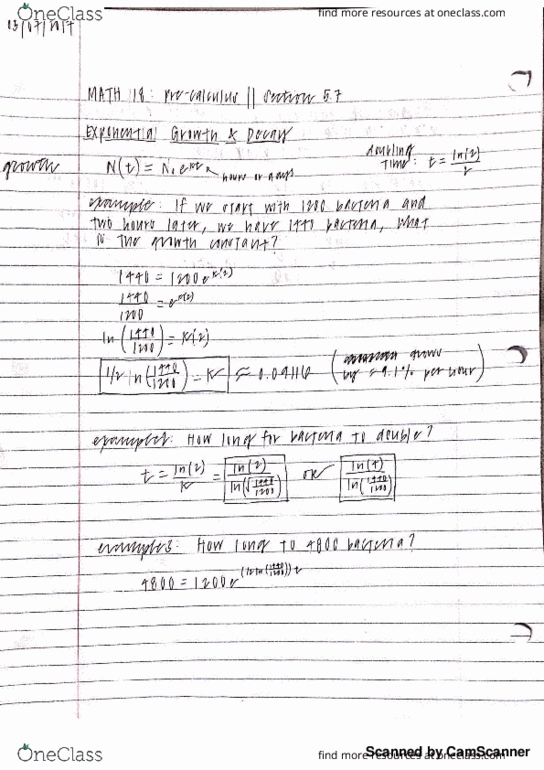 OneClass
find more resources at oneclass.com
MATH 18: Pre-Calculus || Section 5.7
Exponential Growth & Decay
growth
N(t) = N₀e^(kt) hours or days
doubling time: t = ln(2)/k
example: If we start with 1200 bacteria and
two hours later, we have 1440 bacteria, what
is the growth constant?
1440 = 1200e^(k(2))
1440/1200 = e^(k(2))
ln(1440/1200) = k(2)
1/2 ln(1440/1200) = k ≈ 0.09116 (grows by ≈ 9.1% per hour)
example2: How long for bacteria to double?
t = ln(2)/k = ln(2)/ln(√(1440/1200)) or ln(4)/ln(1440/1200)
example3: How long to 4800 bacteria?
4800 = 1200e^((1/2 ln(1440/1200))t)
OneClass
find more resources at oneclass.com
Scanned by CamScanner